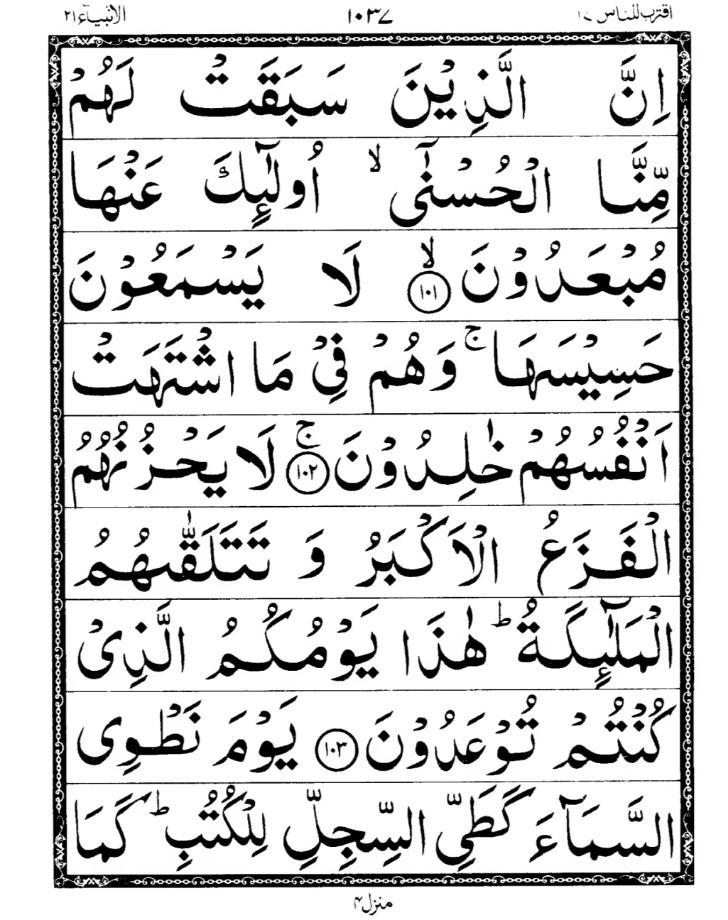 اقترب للناس ١٧ ١٠٣٧ الانبياء ٢١
اِنَّ الَّذِيْنَ سَبَقَتْ لَهُمْ
مِّنَّا الْحُسْنٰٓى ۙ اُولٰٓئِكَ عَنْهَا
مُبْعَدُوْنَ ۙ﴿١٠١﴾ لَا يَسْمَعُوْنَ
حَسِيْسَهَا ۚ وَهُمْ فِيْ مَا اشْتَهَتْ
اَنْفُسُهُمْ خٰلِدُوْنَ ۚ﴿١٠٢﴾ لَا يَحْزُنُهُمُ
الْفَزَعُ الْاَكْبَرُ وَ تَتَلَقّٰىهُمُ
الْمَلٰٓئِكَةُ ؕ هٰذَا يَوْمُكُمُ الَّذِيْ
كُنْتُمْ تُوْعَدُوْنَ ﴿١٠٣﴾ يَوْمَ نَطْوِي
السَّمَآءَ كَطَيِّ السِّجِلِّ لِلْكُتُبِ ؕ كَمَا
منزل ٤